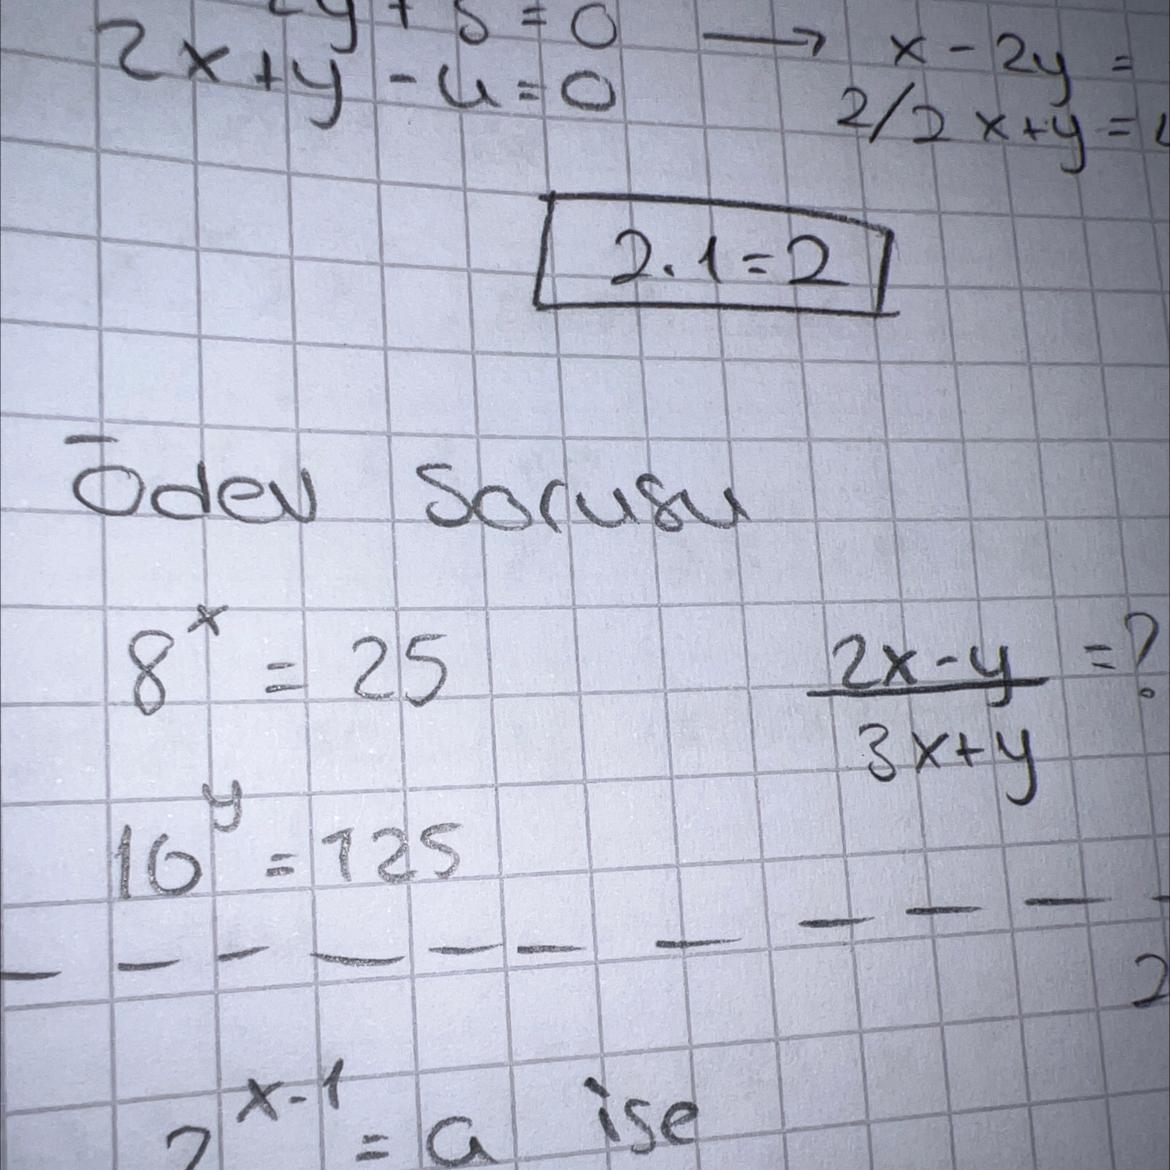 y + 5 = 0 → x - 2y =
2x + y - 4 = 0 2/2x + y =
2.1 = 2
Ödev Sorusu
8^x = 25 (2x - y)/(3x + y) = ?
10^y = 125
2
x-1 = a ise